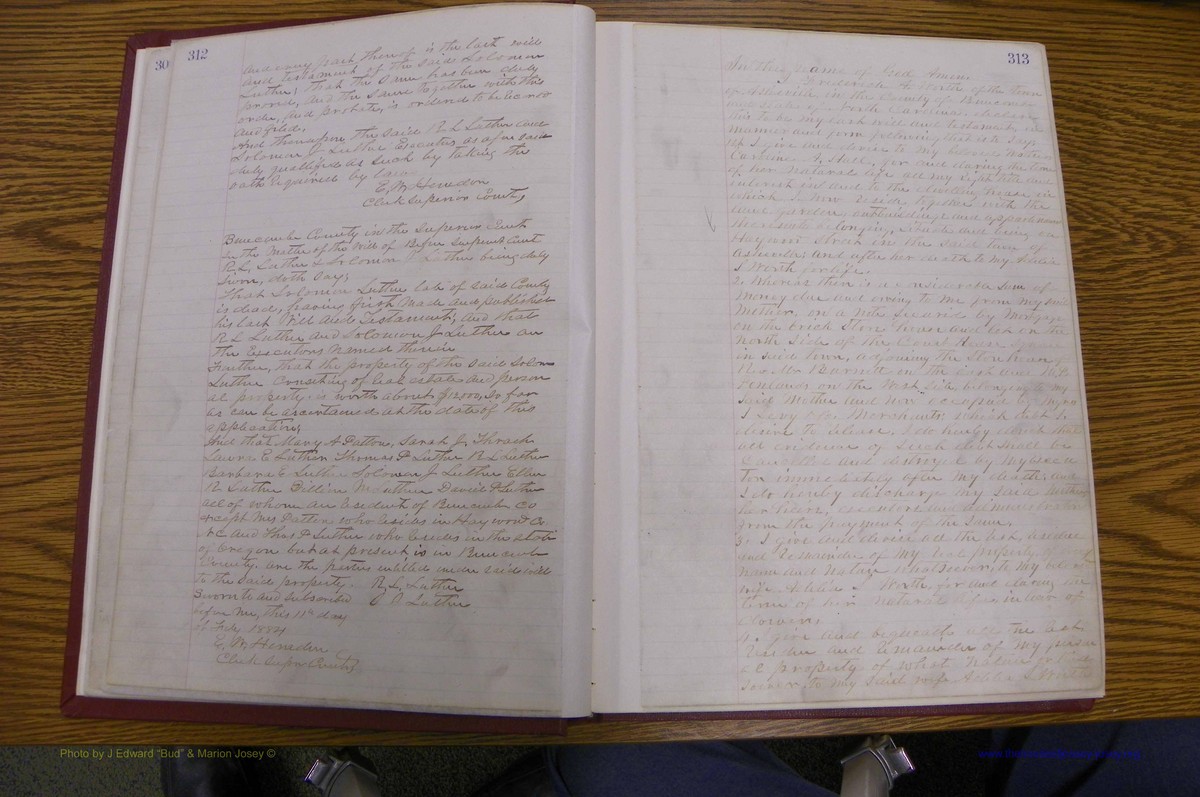 30
312
and every part thereof is the last will
and testament of the said Solomon
Luther; that the same has been duly
proved, and the same together with this
order, and probate, is ordered to be Record
and filed.
And thereupon the said R L Luther and
Solomon J Luther Executors as afore said
duly qualified as such by taking the
oath required by law
E. W. Herndon
Clerk Superior Court,
Buncombe County in the Superior Court
In the Matter of the Will of Before Superior Court
R. L. Luther & Solomon J Luther being duly
sworn, doth say;
That Solomon Luther late of said County
is dead, having first Made and published
his last Will and Testament; and that
R L Luther and Solomon J Luther are
the Executors Named therein
Further, that the property of the said Solomon
Luther Consisting of real estate and person
al property is worth about $12000, So far
as can be ascertained at the date of this
application;
And that Mary A Patton, Sarah J, Thrash
Laura E Luther Thomas P Luther R L Luther
Barbara E Luther Solomon J Luther Ellen
R Luther David P Luther
all of whom are resident of Buncombe Co
except Mrs Patton who resides in Haywood Co
N C and Thos P Luther who resides in the State
of Oregon but at present is in Buncombe
County. are the parties entitled under said will
to the said property. R. L. Luther
Sworn to and subscribed Luther
before me, this 11th day
of Feby 1884
E. W. Herndon
Clerk Super Court,
313
In the name of God Amen
of the Town
of Asheville in the County of Buncombe
and State of North Carolina, declare
this to be my last will and testament, in
manner and form following, that is to say:
1st I give and devise to my beloved Mother
Caroline A. Hall, for and during the time
of her natural life all my right title and
interest in and to the dwelling house in
which I now reside, together with the
land garden, outbuildings and appurtenances
thereunto belonging, situate and lying on
Haywood Street in the said town of
Asheville; and after her death to my
J. Worth for life.
2. Whereas there is a considerable Sum of
Money due and owing to me from my said
Mother, on a Note secured by Mortgage
on the brick Store house and lot on the
North Side of the Court House Square
in said town, adjoining the Store house of
Barnett on the East and
Penlands on the West side belonging to my
said Mother and now occupied by
Levy Merchants which debt I
desire to release, I do hereby direct that
all evidence of such debt shall be
Cancelled and destroyed by my execu
tors immediately after my death, and
I do hereby discharge my said Mother
her heirs, executors and administrators
from the payment of the same.
3. I give and devise all the rest, residue
and remainder of my real property of any
name and nature whatsoever, to my beloved
wife J. Worth, for and during the
term of her natural life in lieu of
dower;
4. I give and bequeath all the rest,
residue and remainder of my person
al property of what nature or kind
soever, to my said wife J Worth
Photo by J Edward "Bud" & Marion Josey ©